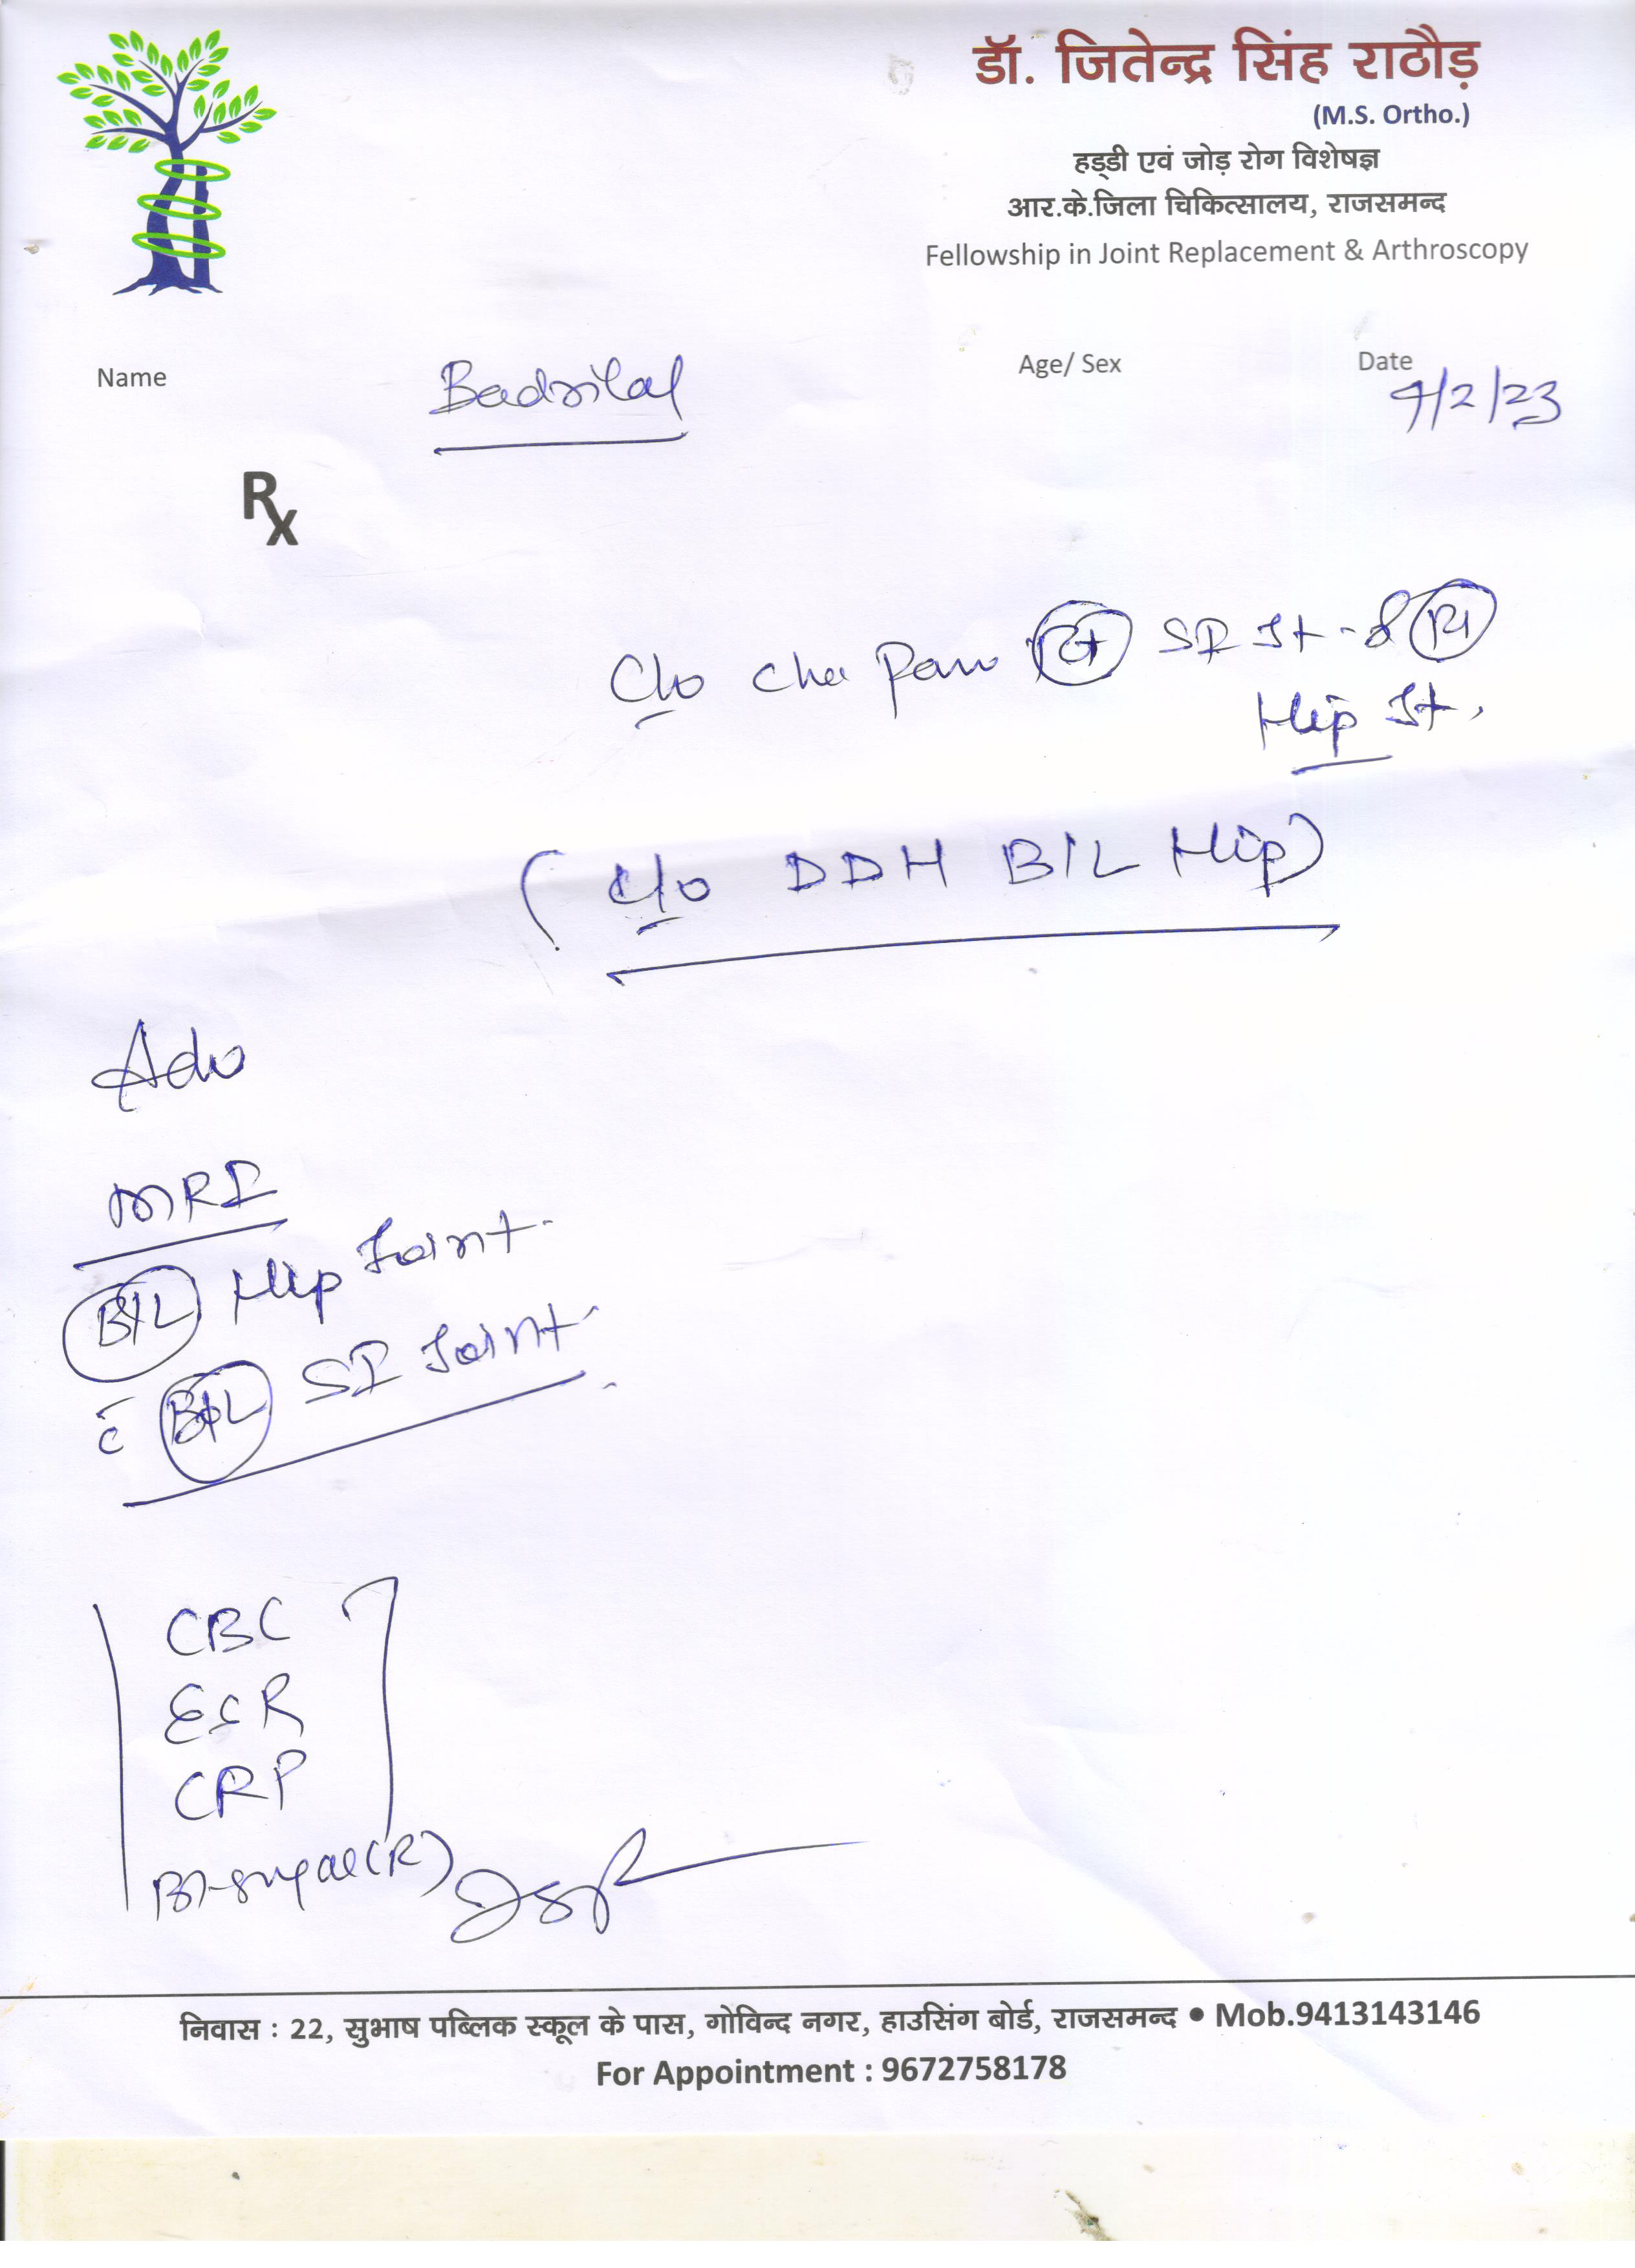 डॉ. जितेन्द्र सिंह राठौड़
(M.S. Ortho.)
हड्डी एवं जोड़ रोग विशेषज्ञ
आर.के.जिला चिकित्सालय, राजसमन्द
Fellowship in Joint Replacement & Arthroscopy
Name Badrilal Age/ Sex Date
/2/23
Rx
C/o Pain SI Jt -
Hip Jt.
( C/o DDH B/L Hip)
Adv
MRI
B/L Hip Joint
c̄ B/L SI Joint
CBC
ESR
CRP
(R)
निवास : 22, सुभाष पब्लिक स्कूल के पास, गोविन्द नगर, हाउसिंग बोर्ड, राजसमन्द ● Mob.9413143146
For Appointment : 9672758178